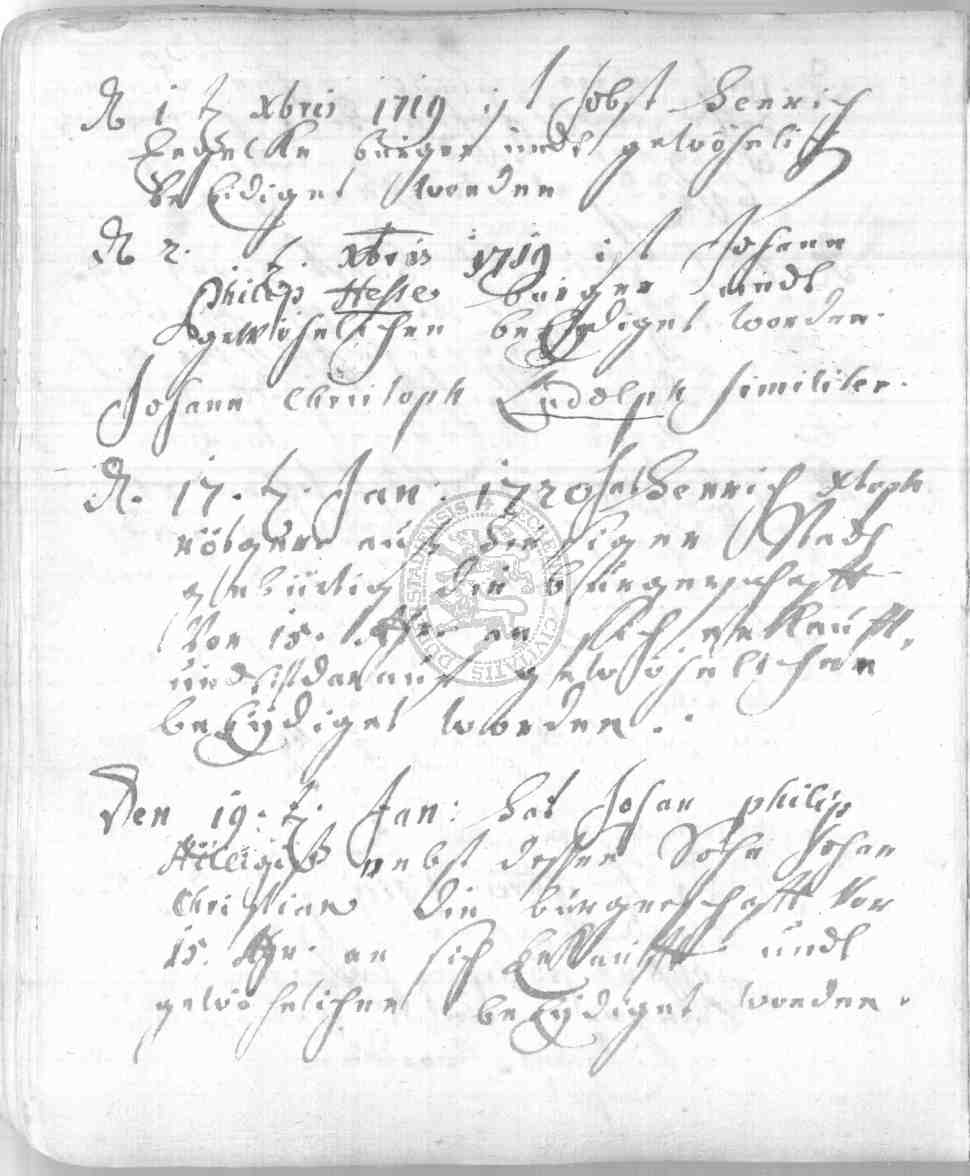 d 1 t Xbris 1719 ist Jobst Henrich
bürger undt gewöhnlich
beeidiget worden
d 2. t. Xbris 1719 ist Johann
Philip Hesse bürger undt
gewöhnlichen beeydiget worden.
Johann Christoph Ludolph similiter.
d. 17. t. Jan: 1720 hat Henrich Xtoph
Rötgers auß hiesiger Stadt
gebürtig die bürgerschafft
Vor 15. an sich erkaufft,
undt ist darauf gewöhnlichen
beeydiget worden.
Den 19. t. Jan: hat Johan Philip
nebst dessen Sohn Johan
Christian die bürgerschafft Vor
15. an sich Erkaufft undt
gewöhnlichen beeydiget worden.
DUDERSTADENSIS CIVITATIS